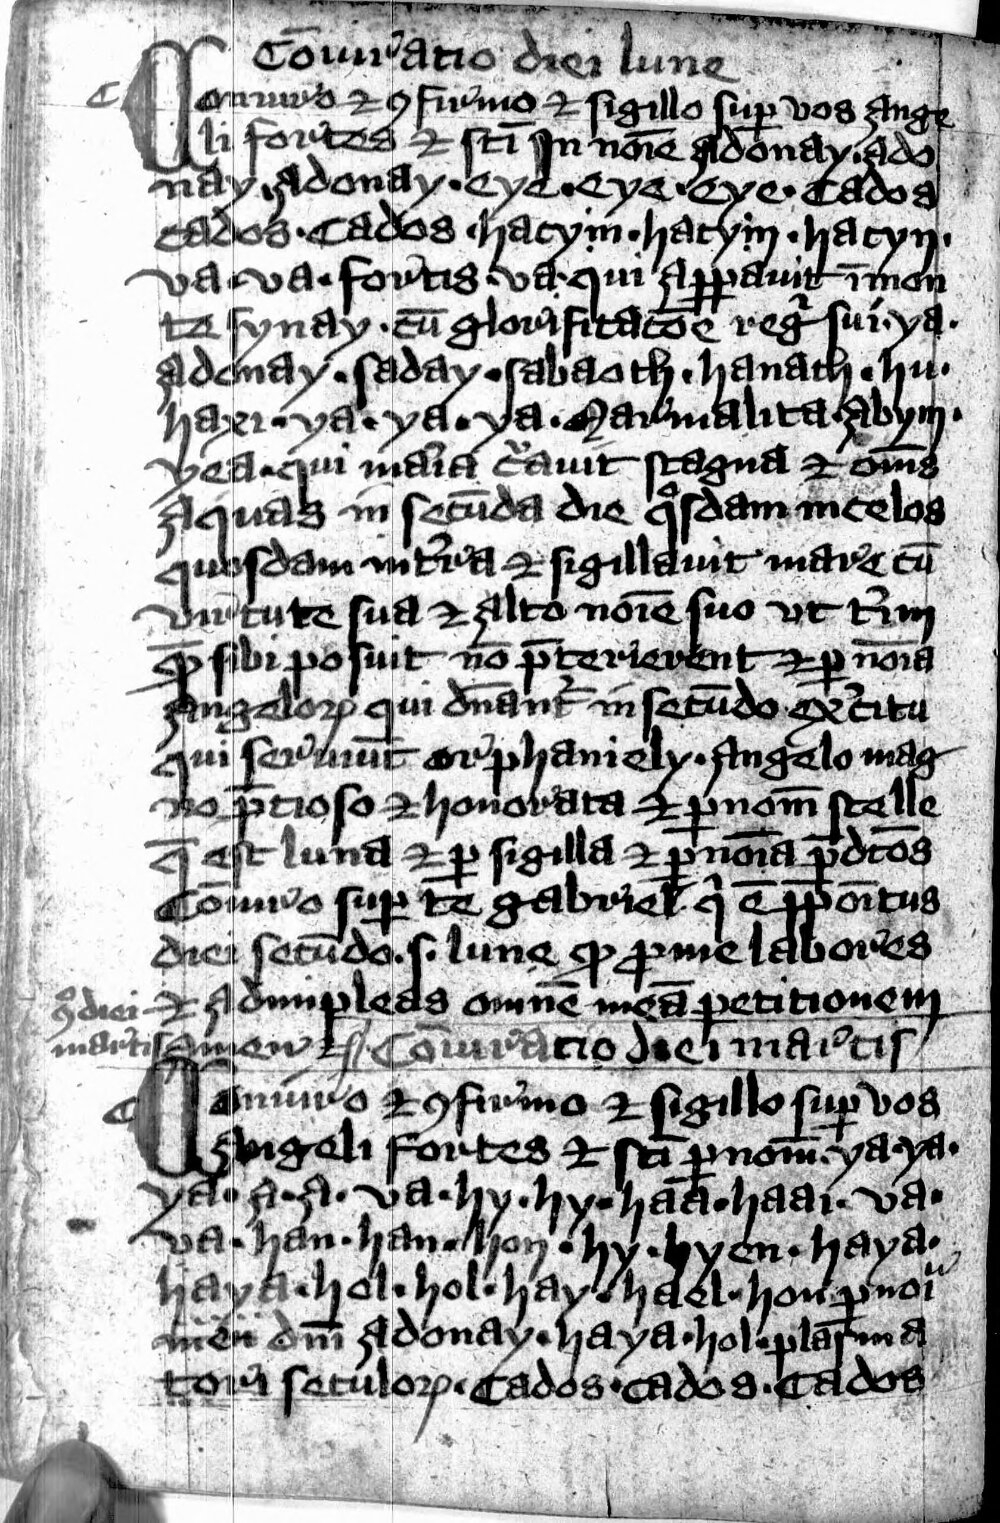 Cōiur͛atio diei lune
Coniuro ⁊ ꝯfirmo ⁊ sigillo suꝑ vos ange
li fortes ⁊ sc̄i In noīe adonay. ado
nay. adonay. eye. eye. eye. cados
cados. cados. hatyin. hatyin. hatyn.
va. va. fortis. va. qui aꝑꝑauit ī mon
te synay. cū glorificatōe reg͛ sui. ya.
adonay. saday. sabaoth. hanath. hu.
haxi. ya. ya. ya. marmalita. abym.
yea. qui maria c͛auit stagna ⁊ om̄s
aquas in secūda die qͦsdam in celos
quosdam in t͛ra ⁊ sigillauit mare cū
virtute sua ⁊ alto noīe suo vt t͛im
ꝙ sibi posuit nō p̄terierent ⁊ ꝑ noīa
angeloꝝ qui dn̄ant͛ in secūdo ex͛citu
qui seruiūt orphaniely. angelo mag
no p̄tioso ⁊ honorata ⁊ ꝑ nom̄ stelle
q̄ est luna ⁊ ꝑ sigilla ⁊ ꝑ noīa p̄dc̄os
Cōiuro suꝑ te gabriel. qͥ ē p̄poītus
diei secūdo. s. lune ꝙ ꝓ me labores
⁊ adimpleas omnē meā petitionem
ꝯ diei
martis
amen ⁊ Cōiur͛atio diei martis
Coniuro ⁊ ꝯfirmo ⁊ sigillo suꝑ vos
Angeli fortes ⁊ sc̄i ꝑ nom̄. ya. ya.
ya. a. a. va. hy. hy. haa. haai. va.
va. han. han. hon. hy. hyen. haya.
haya. hol. hol. hay. hael. hon ꝑ noī
dn̄i adonay. haya. hol. plasma
tori seculoꝝ. Cados. cados. Cados